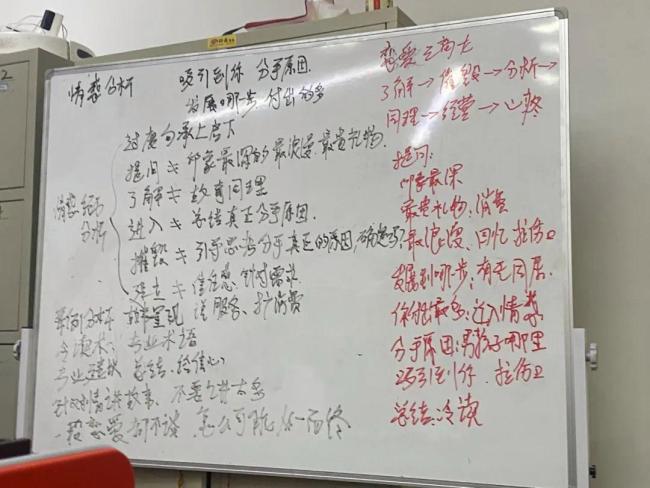 情感分析 吸引到你 分手原因
发展哪步 付出的多
过度句承上启下
提问 印象最深的 最浪漫 最贵礼物
了解 故事同理
进入 总结真正分手原因
摧毁 引导思考分手真正的原因,确定吗?
建立 信任感 针对需求
情感经历
分析
案例分析 故事呈现 送服务、扩消费
冷读术: 专业术语
专业建议 总结、给信心
针对剧情讲故事、不要讲太多
一段恋爱都不谈 怎么可能从一而终
恋爱
了解→摧毁→分析→
同理→经营→心疼
提问:
印象最深
最贵礼物、消费
最浪漫、回忆 拉伤口
发展到哪步:有无同居
你付出最多:进入情景
分手原因:男孩子哪里
吸引到你、拉伤口
总结:冷读